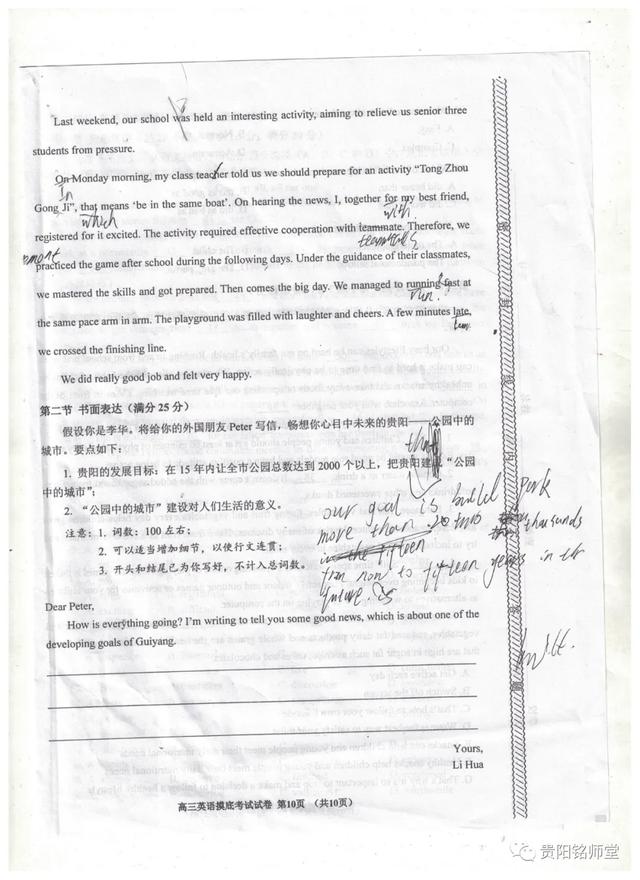 Last weekend, our school was held an interesting activity, aiming to relieve us senior three
students from pressure.
On Monday morning, my class teacher told us we should prepare for an activity “Tong Zhou
In
Gong Ji”, that means ‘be in the same boat’. On hearing the news, I, together for my best friend,
which
with
registered for it excited. The activity required effective cooperation with teammate. Therefore, we
teammates
practiced the game after school during the following days. Under the guidance of their classmates,
we mastered the skills and got prepared. Then comes the big day. We managed to running fast at
run
the same pace arm in arm. The playground was filled with laughter and cheers. A few minutes late,
we crossed the finishing line.
We did really good job and felt very happy.
第二节 书面表达（满分25分）
假设你是李华。将给你的外国朋友 Peter 写信，畅想你心目中未来的贵阳——公园中的
城市。要点如下：
that
1. 贵阳的发展目标：在 15 年内让全市公园总数达到 2000 个以上，把贵阳建成“公园
中的城市”；
2. “公园中的城市”建设对人们生活的意义。
our goal is build park
注意：1. 词数：100 左右；
more than two thusands
2. 可以适当增加细节，以使行文连贯；
the fifteen
3. 开头和结尾已为你写好，不计入总词数。
from now to fifteen years in the
future. is
Dear Peter,
How is everything going? I’m writing to tell you some good news, which is about one of the
developing goals of Guiyang.
built.
Yours,
Li Hua
高三英语摸底考试试卷 第10页 （共10页）
贵阳铭师堂